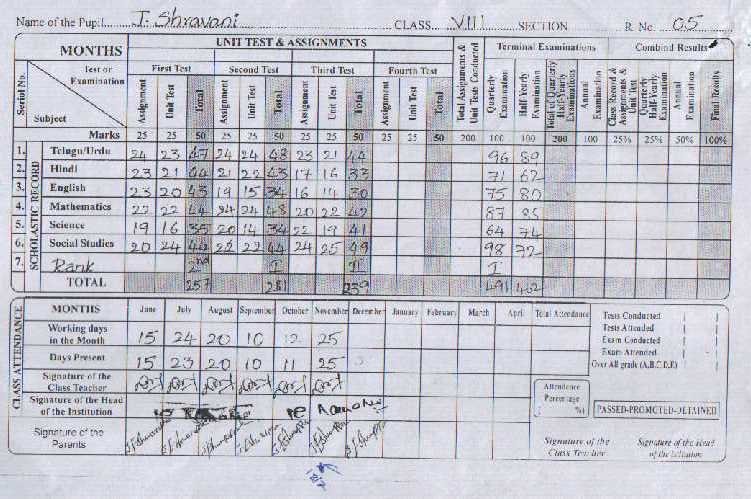 Name of the Pupil J. Shravani CLASS VIII SECTION R. No. 05
MONTHS UNIT TEST & ASSIGNMENTS Total Assignments & Unit Tests Conducted Terminal Examinations Combind Results
Serial No. Test or Examination First Test Second Test Third Test Fourth Test Quarterly Examination Half Yearly Examination Total of Quarterly Half-Yearly Examinations Annual Examination Class Record & Assignments & Unit Test Quarterly Half-Yearly Examination Annual Examination Final Results
Subject Assignment Unit Test Total Assignment Unit Test Total Assignment Unit Test Total Assignment Unit Test Total
Marks 25 25 50 25 25 50 25 25 50 25 25 50 200 100 100 200 100 25% 25% 50% 100%
SCHOLASTIC RECORD
1. Telugu/Urdu 24 23 47 24 24 48 23 21 44 96 89
2. Hindi 23 21 44 21 22 43 17 16 33 71 62
3. English 23 20 43 19 15 34 16 14 30 75 80
4. Mathematics 22 22 44 24 24 48 20 22 42 87 85
5. Science 19 16 35 20 14 34 22 19 41 64 74
6. Social Studies 20 24 44 22 22 44 24 25 49 98 72
7. Rank 2nd I I
TOTAL 257 239 491 462
CLASS ATTENDANCE
MONTHS June July August September October November December January February March April Total Attendance
Working days in the Month 15 24 20 10 12 25
Days Present 15 23 20 10 11 25
Signature of the Class Teacher
Signature of the Head of the Institution
Signature of the Parents
Tests Conducted
Tests Attended
Exam Conducted
Exam Attended
Over All grade (A.B.C.D.E)
Attendance Percentage %)
PASSED-PROMOTED-DETAINED
Signature of the Class Teacher
Signature of the Head of the